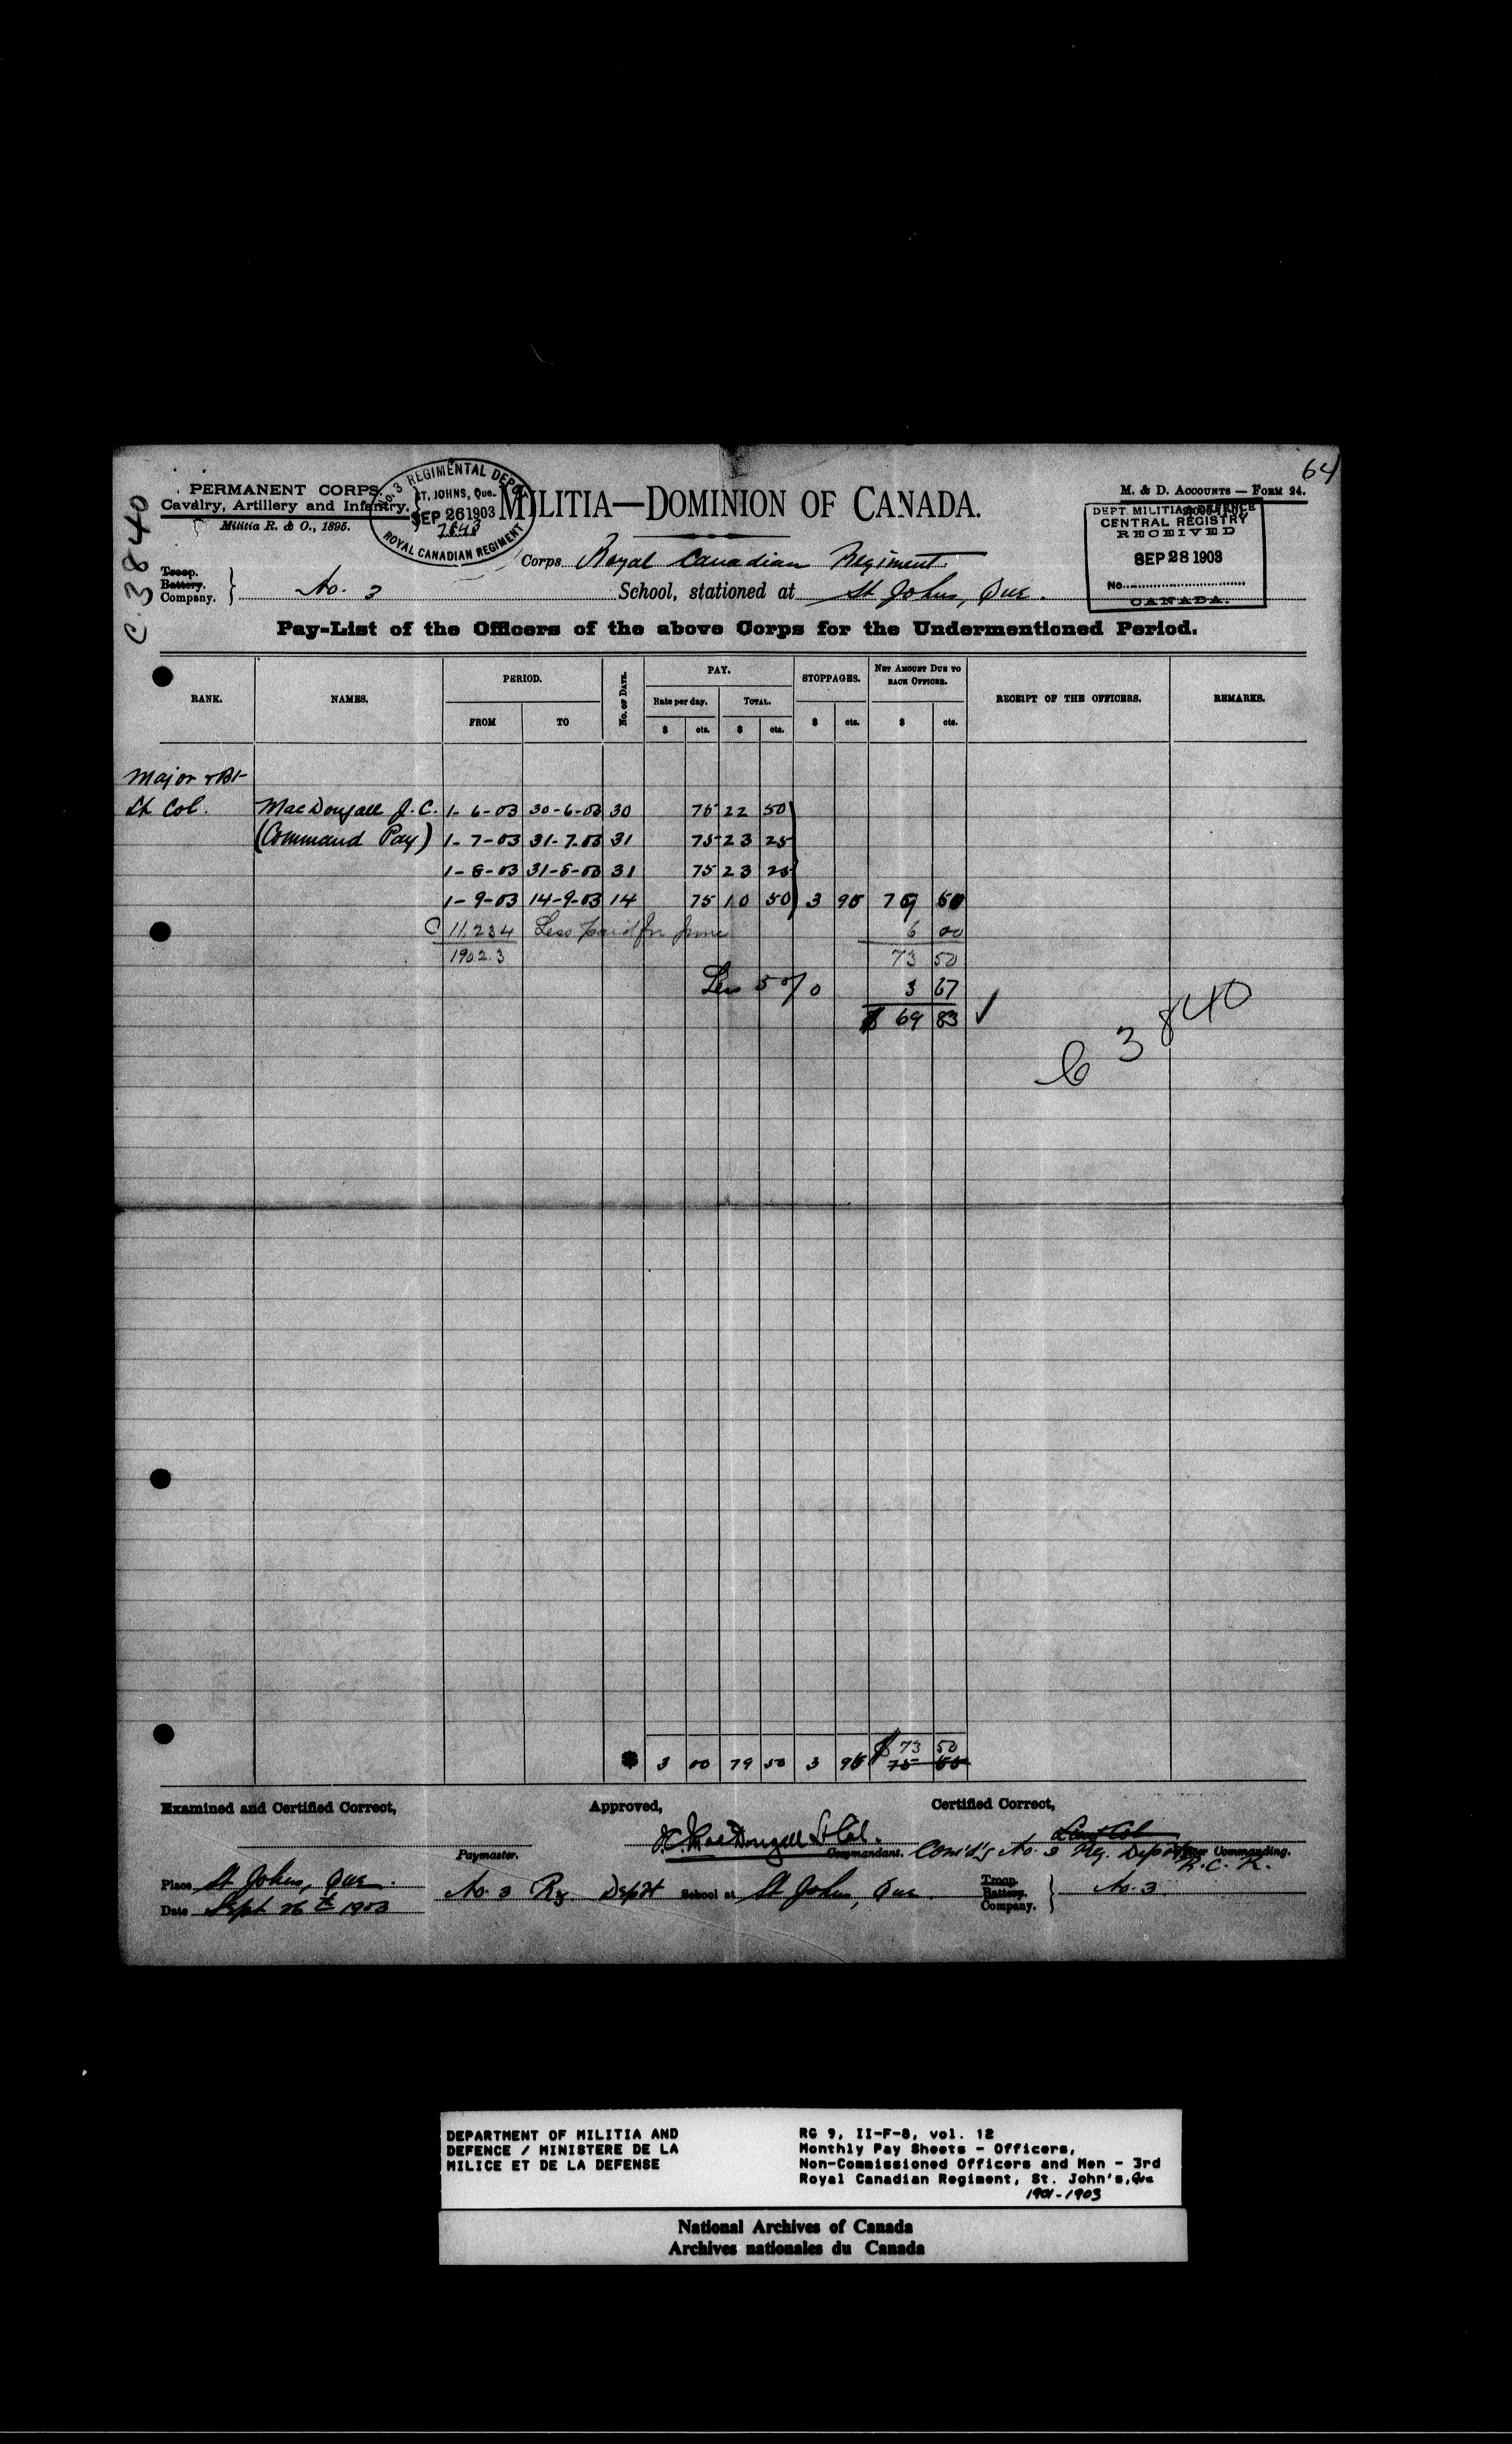 64
PERMANENT CORPS.
Cavalry, Artillery and Infantry.
Militia R. & O., 1895.
C 3840
No. 3 REGIMENTAL DEPOT
ST. JOHNS, Que.
SEP 26 1903
ROYAL CANADIAN REGIMENT
MILITIA—DOMINION OF CANADA.
M. & D. ACCOUNTS — FORM 24.
DEPT. MILITIA & DEFENCE
CENTRAL REGISTRY
RECEIVED
SEP 28 1903
No.
CANADA.
Corps Royal Canadian Regiment
Troop.
Battery.
Company. } No. 3 School, stationed at St Johns, Que.
Pay-List of the Officers of the above Corps for the Undermentioned Period.
RANK. NAMES. PERIOD. No. of Days. PAY. STOPPAGES. NET AMOUNT DUE TO EACH OFFICER. RECEIPT OF THE OFFICERS. REMARKS.
FROM TO Rate per day. TOTAL.
$ cts. $ cts. $ cts. $ cts.
Major & Bt-
Lt Col. MacDougall J. C. 1-6-03 30-6-03 30 75 22 50
(Command Pay) 1-7-03 31-7-03 31 75 23 25
1-8-03 31-8-03 31 75 23 25
1-9-03 14-9-03 14 75 10 50 3 98 79 50
C 11,234 Less paid for June 6 00
1902.3 73 50
Less 5 % 3 67
$ 69 83 ✓
C 3840
$ 73 50
3 00 79 50 3 98 75
Examined and Certified Correct, Approved, Certified Correct,
J.C. MacDougall Lt Col. Lieut Col
Paymaster. Commandant. Com'd'g No. 3 Reg. Depot Commanding.
R. C. R.
Place St Johns, Que. No. 3 Rg Depôt School at St Johns, Que. Troop.
Battery.
Company. } No. 3
Date Sept 26th 1903
DEPARTMENT OF MILITIA AND
DEFENCE / MINISTERE DE LA
MILICE ET DE LA DEFENSE
RG 9, II-F-8, vol. 12
Monthly Pay Sheets - Officers,
Non-Commissioned Officers and Men - 3rd
Royal Canadian Regiment, St. John's, Que
1901-1903
National Archives of Canada
Archives nationales du Canada